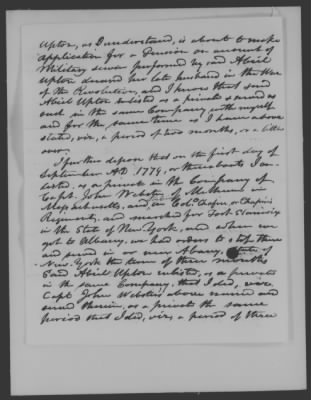 Upton, as I understand, is about to make
application for a Pension on account of
Military service performed by said Abiel
Upton deceased her late husband in the War
of the Revolution, and I know that said
Abiel Upton enlisted as a private & served as
such in the same Company with myself
and for the same time as I have above
stated, viz, a period of two months, or a little
over.
I further depose that on the first day of
September A.D. 1779, or thereabouts I en-
listed, as a private in the Company of
Capt. John Webster, of Methuen in
Massachusetts, and, in Col.
Regiment, and marched for Fort Stanwix
in the State of New York, and when we
got to Albany, we had orders to stop there
and served in & near Albany,
New York the term of three months
Said Abiel Upton enlisted, as a private
in the same Company, that I did,
Capt. John Webster's above named and
served therein, as a private the same
period that I did, viz, a period of three